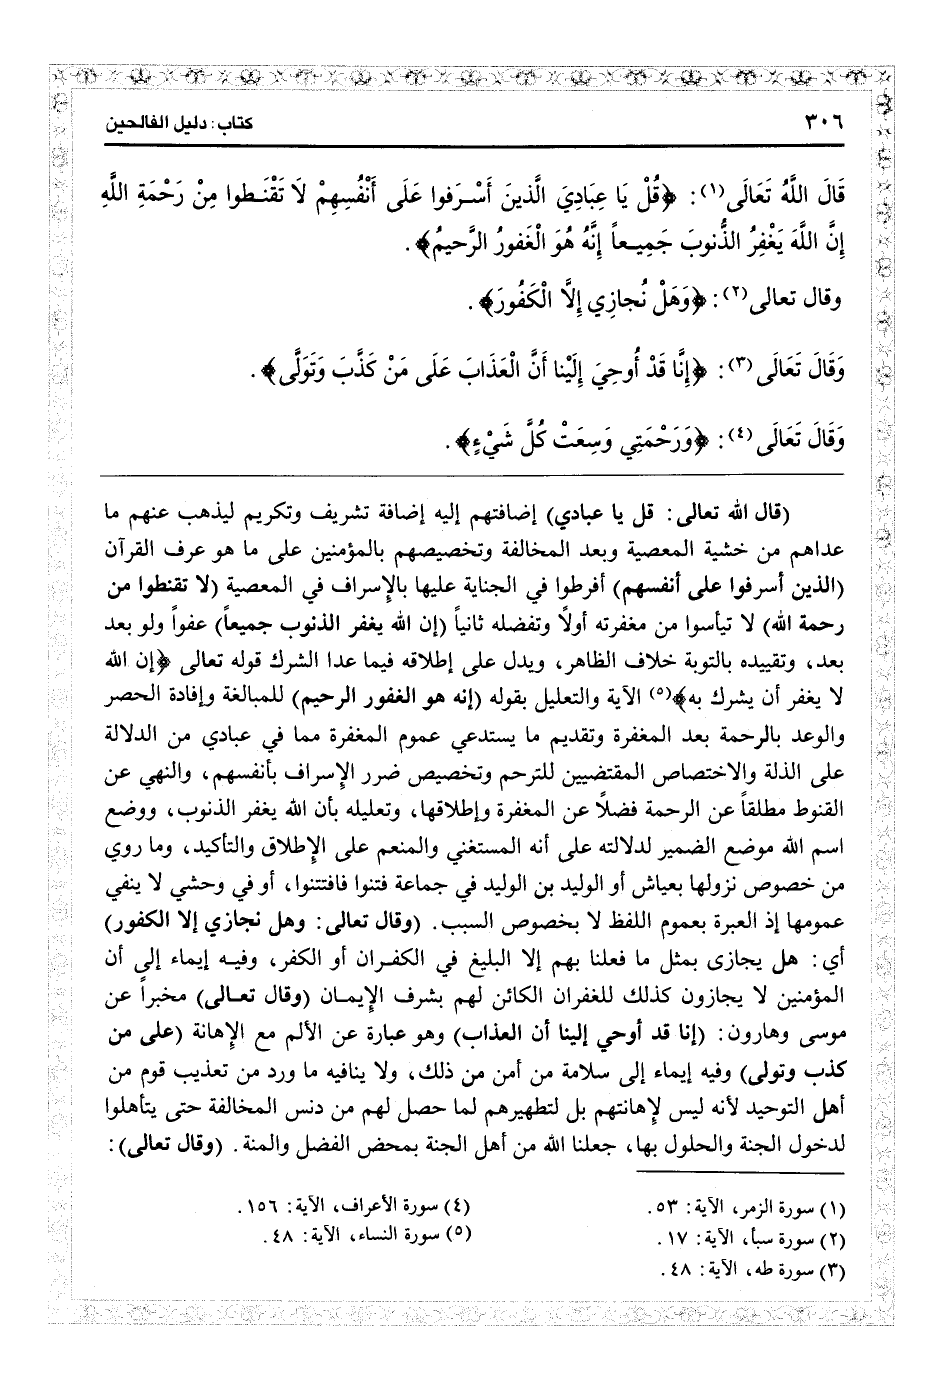 ٣٠٦ كتاب: دليل الفالحين
قَالَ اللَّهُ تَعَالَى(١): ﴿قُلْ يَا عِبَادِيَ الَّذينَ أَسْـرَفوا عَلَى أَنْفُسِهِمْ لَا تَقْنَـطوا مِنْ رَحْمَةِ اللَّهِ
إِنَّ اللَّهَ يَغْفِرُ الذُّنوبَ جَمِيـعاً إِنَّهُ هُوَ الْغَفورُ الرَّحيمُ﴾.
وقال تعالى(٢): ﴿وَهَلْ نُجازِي إِلَّا الْكَفُورَ﴾.
وَقَالَ تَعَالَى(٣): ﴿إِنَّا قَدْ أُوحِيَ إِلَيْنا أَنَّ الْعَذَابَ عَلَى مَنْ كَذَّبَ وَتَوَلَّى﴾.
وَقَالَ تَعَالَى(٤): ﴿وَرَحْمَتِي وَسِعَتْ كُلَّ شَيْءٍ﴾.
(قال الله تعالى: قل يا عبادي) إضافتهم إليه إضافة تشريف وتكريم ليذهب عنهم ما
عداهم من خشية المعصية وبعد المخالفة وتخصيصهم بالمؤمنين على ما هو عرف القرآن
(الذين أسرفوا على أنفسهم) أفرطوا في الجناية عليها بالإسراف في المعصية (لا تقنطوا من
رحمة الله) لا تيأسوا من مغفرته أولاً وتفضله ثانياً (إن الله يغفر الذنوب جميعاً) عفواً ولو بعد
بعد، وتقييده بالتوبة خلاف الظاهر، ويدل على إطلاقه فيما عدا الشرك قوله تعالى ﴿إن الله
لا يغفر أن يشرك به﴾(٥) الآية والتعليل بقوله (إنه هو الغفور الرحيم) للمبالغة وإفادة الحصر
والوعد بالرحمة بعد المغفرة وتقديم ما يستدعي عموم المغفرة مما في عبادي من الدلالة
على الذلة والاختصاص المقتضيين للترحم وتخصيص ضرر الإسراف بأنفسهم، والنهي عن
القنوط مطلقاً عن الرحمة فضلاً عن المغفرة وإطلاقها، وتعليله بأن الله يغفر الذنوب، ووضع
اسم الله موضع الضمير لدلالته على أنه المستغني والمنعم على الإطلاق والتأكيد، وما روي
من خصوص نزولها بعياش أو الوليد بن الوليد في جماعة فتنوا فافتتنوا، أو في وحشي لا ينفي
عمومها إذ العبرة بعموم اللفظ لا بخصوص السبب. (وقال تعالى: وهل نجازي إلا الكفور)
أي: هل يجازى بمثل ما فعلنا بهم إلا البليغ في الكفـران أو الكفر، وفيـه إيماء إلى أن
المؤمنين لا يجازون كذلك للغفران الكائن لهم بشرف الإيمـان (وقال تعـالى) مخبراً عن
موسى وهارون: (إنا قد أوحي إلينا أن العذاب) وهو عبارة عن الألم مع الإهانة (على من
كذب وتولى) وفيه إيماء إلى سلامة من أمن من ذلك، ولا ينافيه ما ورد من تعذيب قوم من
أهل التوحيد لأنه ليس لإهانتهم بل لتطهيرهم لما حصل لهم من دنس المخالفة حتى يتأهلوا
لدخول الجنة والحلول بها، جعلنا الله من أهل الجنة بمحض الفضل والمنة. (وقال تعالى):
(١) سورة الزمر، الآية: ٥٣.
(٢) سورة سبأ، الآية: ١٧.
(٣) سورة طه، الآية: ٤٨.
(٤) سورة الأعراف، الآية: ١٥٦.
(٥) سورة النساء، الآية: ٤٨.